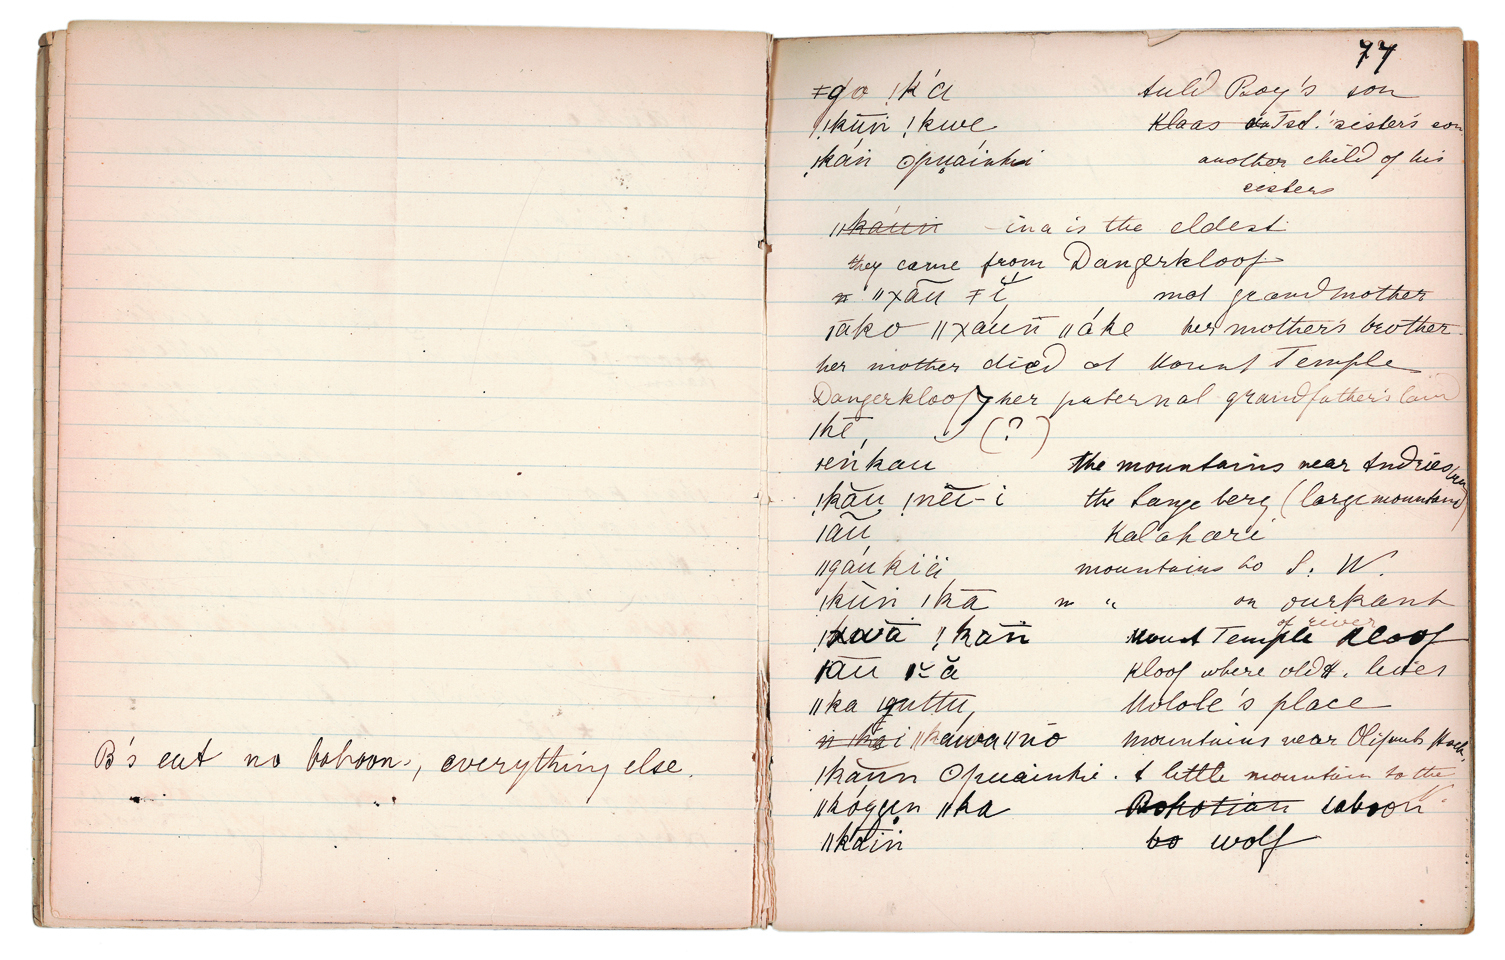 B's eat no baboon, everything else.
77
ǂgo !k'a auld Booy's son
!kūn !kwe Klaas Tsd. sister's son
!kán ʘpuainki another child of his
sisters
ǁkáuin - ina is the eldest
they came from Dangerkloof
n ǁxãū ǂĭ mat grandmother
ǀāko ǁxáuñ ǁáke her mother's brother
her mother died at Mount Temple
Dangerkloof, her paternal grandfather's land
ǀkē, (?)
enkau the mountains near Andriesberg
!kãu ǃnēī-i the Lange berg (large mountains)
ǀãū Kalahari
ǁgáukiä mountains to S. W.
!kūn !kā " " on ourkant
of river
!xwā !kāñ Mount Temple Kloof
ǀāū ǀ ă Kloof where old H. lives
ǁka ǀguttu, Molole's place
n !kai ǁkáwaǁnō mountains near Olifants Hoek,
!kãūn ʘpuainki. A little mountain to the
N.
ǁkógun ǁka Bokotian baboon
ǁkãin bo wolf